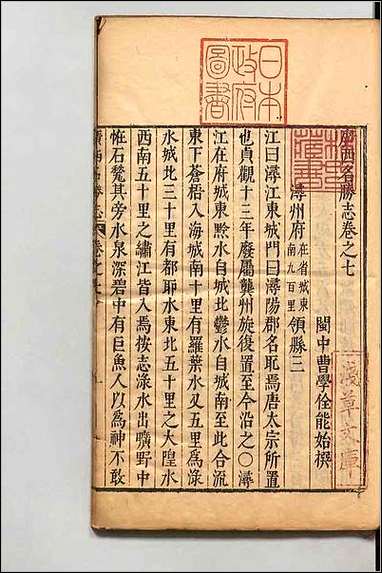 日本
政府
圖書
廣西名勝志卷之七
閩中曹學佺能始撰
淺草文庫
潯州府在省城東南九百里領縣三
江曰潯江東城門曰潯陽郡名恥焉唐太宗所置
也貞觀十三年廢屬龔州旋復置至今沿之〇潯
江在府城東黔水自城北鬱水自城南至此合流
東下蒼梧入海城南十里有羅葉水又五里爲淥
水城北三十里有都耶水東北五十里之大隍水
西南五十里之繡江皆入焉按志淥水出曠野中
恠石甃其旁水泉深碧中有巨魚人以爲神不敢
廣西名勝志
卷之七